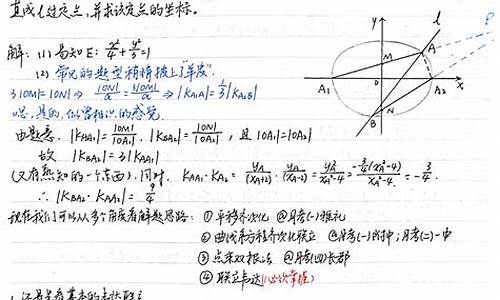 直线l过定点,并求该定点的坐标。
解: (1) 易知E: x²/4 + y²/3 = 1
(2) 常见的题型稍稍披上了"羊皮".
3|OM|=|ON| ⇒ |ON|/a = 3|OM|/a ⇒ |K_{A1A}| = 1/3|K_{A2B}|
嗯,是的,似曾相识的感觉
由题意. |K_{A1A}| = |OM|/|OA1|. |K_{BA2}| = |ON|/|OA2|, 且 |OA1|=|OA2|
故 |K_{BA2}| = 3|K_{AA1}|
(又有熟知的一个东西). 同时. K_{AA1}·K_{AA2} = y_A/(x_A+2) · y_A/(x_A-2) = y_A²/(x_A²-4) = -3/4(x_A²-4)/(x_A²-4) = -3/4.
∴ |K_{BA2}·K_{AA2}| = 9/4
现在我们可以从多个角度看解题思路: ① 平移齐次化 @月考(一)雅礼
② 曲线系方程齐次化联立 @月考(一)附中;月考(二)一中
③ 点乘双根法 @月考(四)长郡
④ 联立韦达(必须掌握)
y
l
P
A
M
A1
O
A2
x
N
B